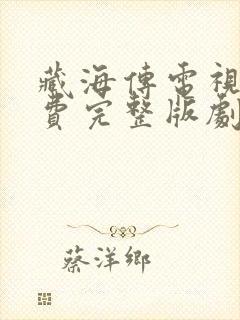 藏海傳電視
費完整版劇
蔡洋鄉